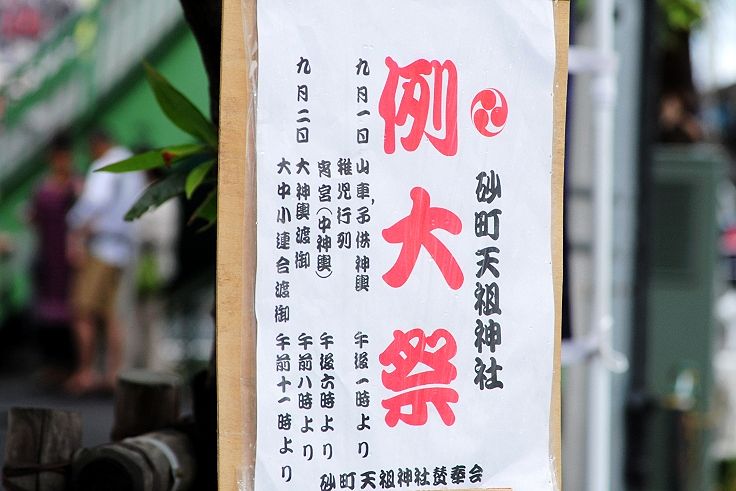 砂町天祖神社
例大祭
九月一日 山車、子供神輿 午後一時より
稚児行列
宵宮(中神輿) 午後六時より
九月二日 大神輿渡御 午前八時より
大中小連合渡御 午前十一時より
砂町天祖神社賛奉会